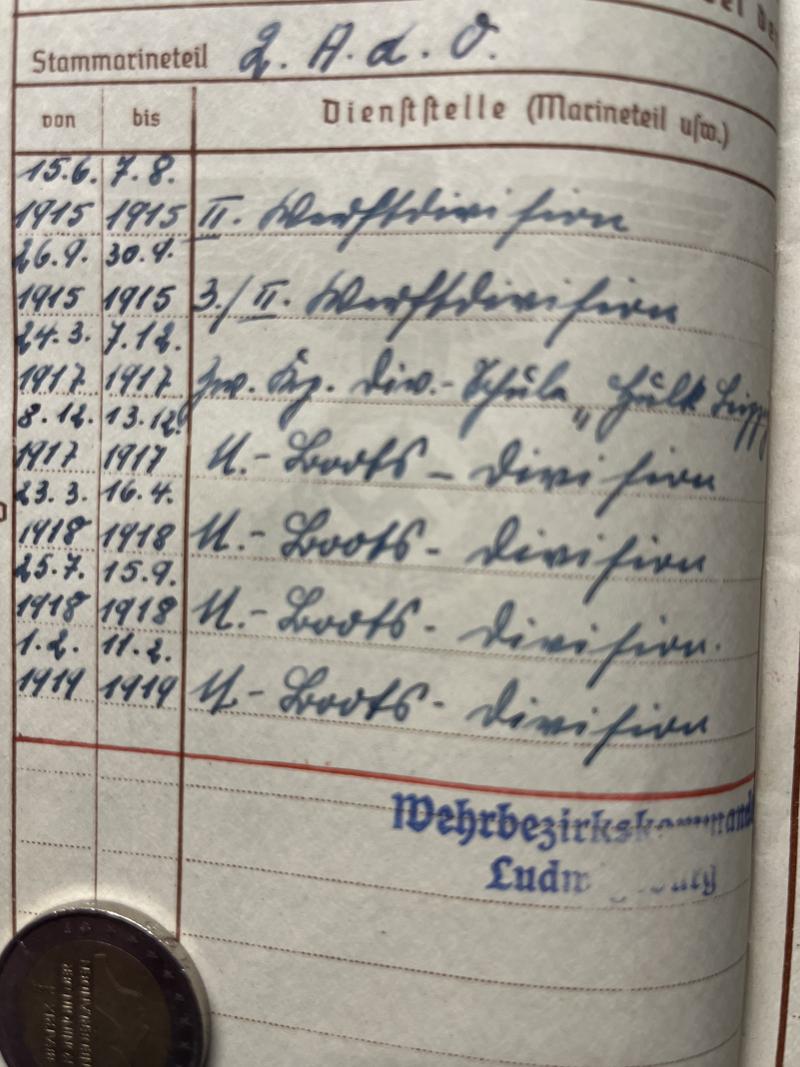 Stammarineteil 2. A. d. O.
von bis Dienststelle (Marineteil usw.)
15.6. 7.8.
1915 1915 II. Werftdivision
26.9. 30.9.
1915 1915 3./II. Werftdivision
24.3. 7.12.
1917 1917 Kp. Div.-Schule „Hulk
8.12. 13.12.
1917 1917 U.-Boots-Division
23.3. 16.4.
1918 1918 U.-Boots-Division
25.7. 15.9.
1918 1918 U.-Boots-Division.
1.2. 11.2.
1919 1919 U.-Boots-Division